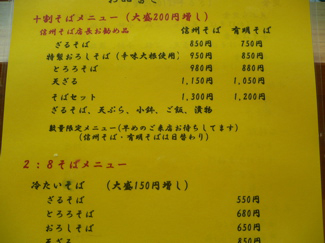 十割そばメニュー（大盛200円増し）
信州そば店長お勧め品 信州そば 有明そば
ざるそば 850円 750円
特製おろしそば（辛味大根使用） 950円 850円
とろろそば 980円 880円
天ざる 1,150円 1,050円
そばセット 1,300円 1,200円
ざるそば、天ぷら、小鉢、ご飯、漬物
数量限定メニュー（早めのご来店お待ちしてます）
（信州そば・有明そばは日替わり）
2：8そばメニュー
冷たいそば （大盛150円増し）
ざるそば 550円
とろろそば 680円
おろしそば 650円
天ざる 850円